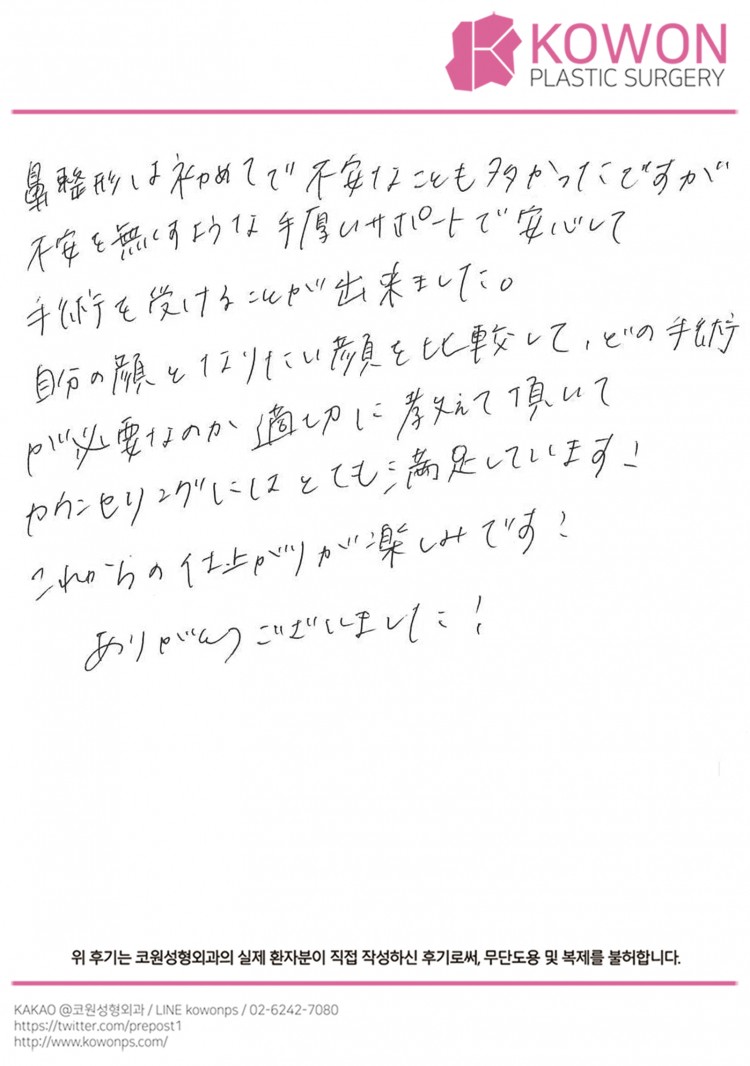 KOWON
PLASTIC SURGERY
鼻整形は初めてで不安なことも多かったですが
不安を無くすような手厚いサポートで安心して
手術を受けることが出来ました。
自分の顔となりたい顔を比較して、どの手術
が必要なのか適切に教えて頂いて
カウンセリングにはとても満足しています!
これからの仕上がりが楽しみです!
ありがとうございました!
위 후기는 코원성형외과의 실제 환자분이 직접 작성하신 후기로써, 무단도용 및 복제를 불허합니다.
KAKAO @코원성형외과 / LINE kowonps / 02-6242-7080
https://twitter.com/prepost1
http://www.kowonps.com/